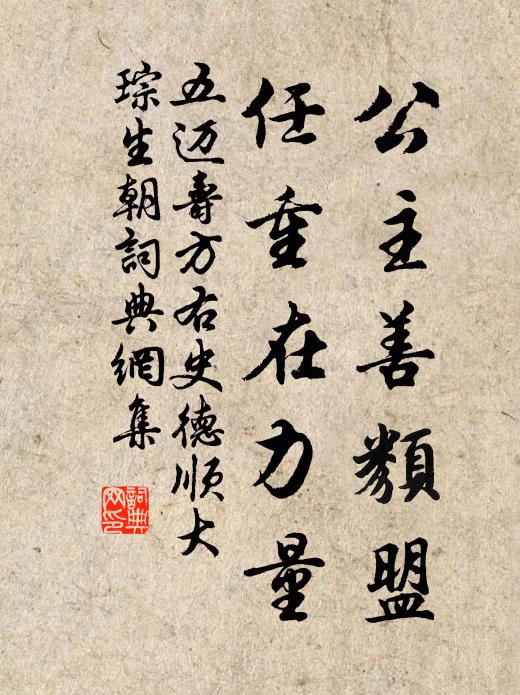 公主善類盟
任重在力量
五迈壽方右史德順大
琮生朝詞典網集
詞典
网印